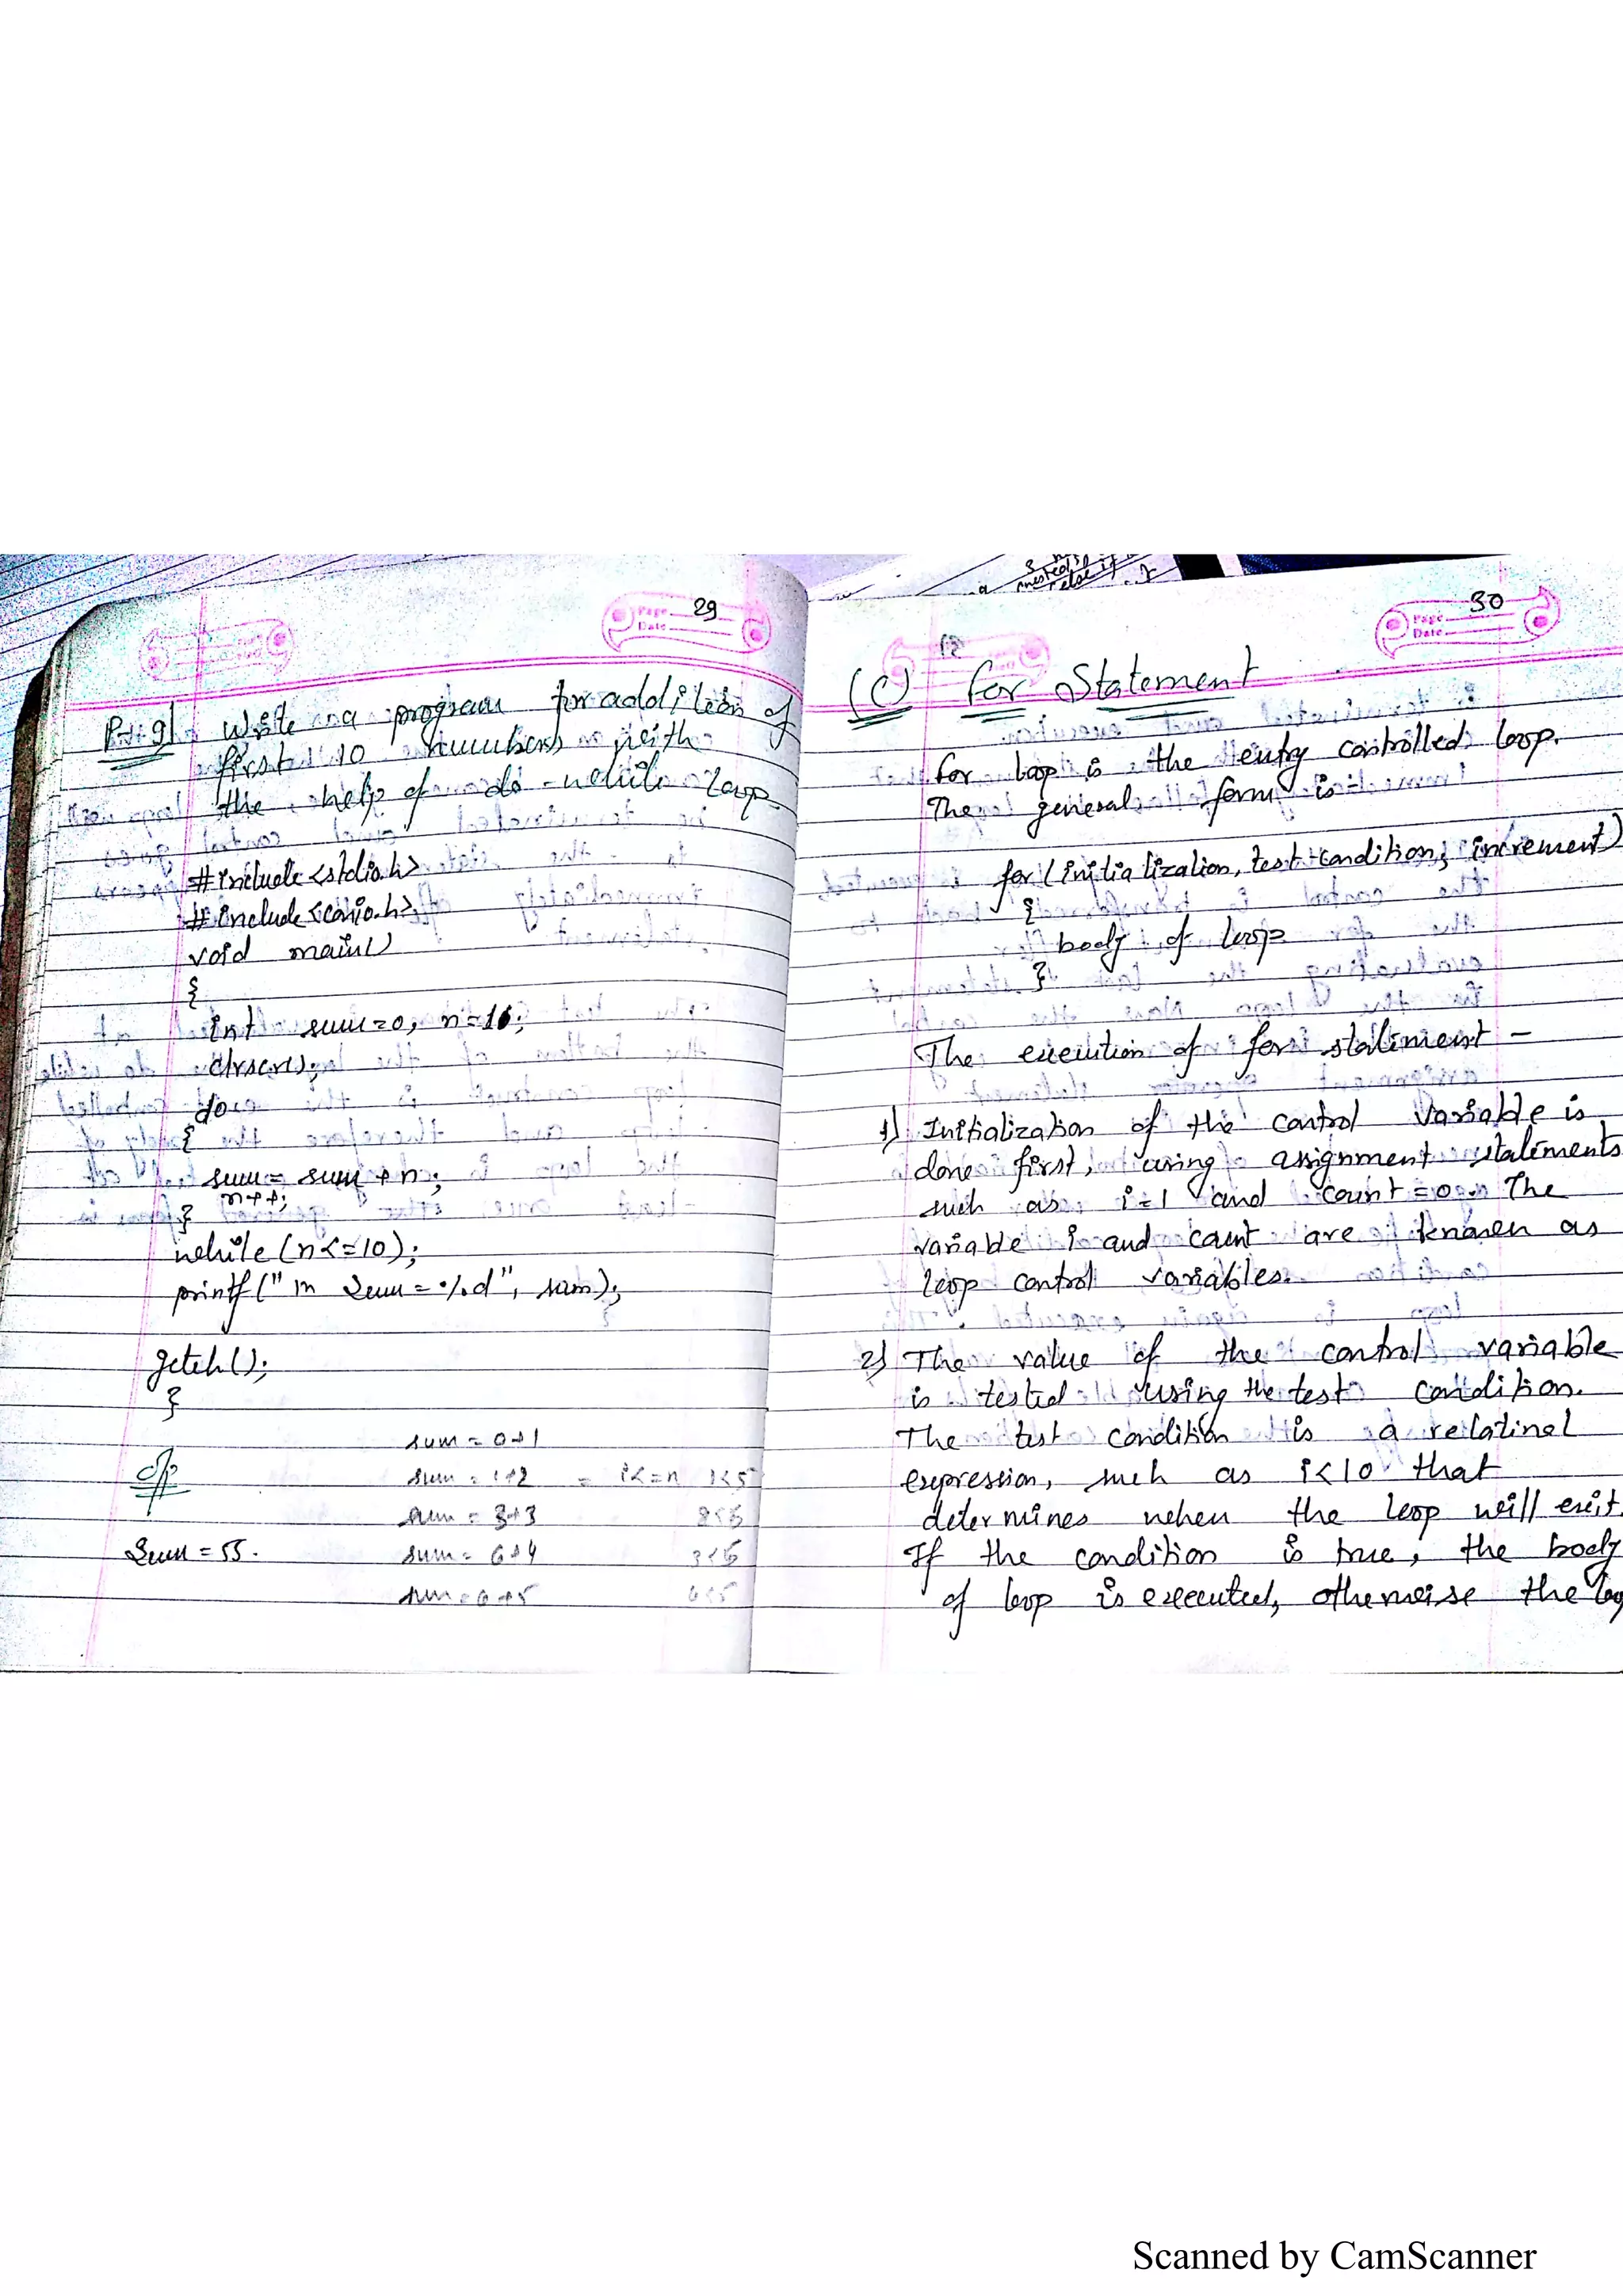 29
Write a program for addition of
first 10 numbers with
the help of do-while loop.
#include <stdio.h>
#include <conio.h>
void main()
{
int sum=0, n=10;
clrscr();
do
{
sum = sum + n;
n++;
}
while (n<=10);
printf("\n Sum = %d", sum);
getch();
}
sum = 0+1
o/p sum = 1+2 = i<=n 1<5
sum = 3+3
Sum = 55. sum = 6+4
30
(C) for Statement
for loop is the entry controlled loop.
The general form is
for (initialization, test-condition; increment)
{
body of loop
}
The execution of for statement –
1) Initialization of the control variable is
done first, using assignment statements
such as i=1 and count=0. The
variable i and count are known as
loop control variables.
2) The value of the control variable
is tested using the test condition.
The test condition is a relatinal
expression, such as i<10 that
determines when the loop will exit.
If the condition is true, the body
of loop is executed, otherwise the loo
Scanned by CamScanner